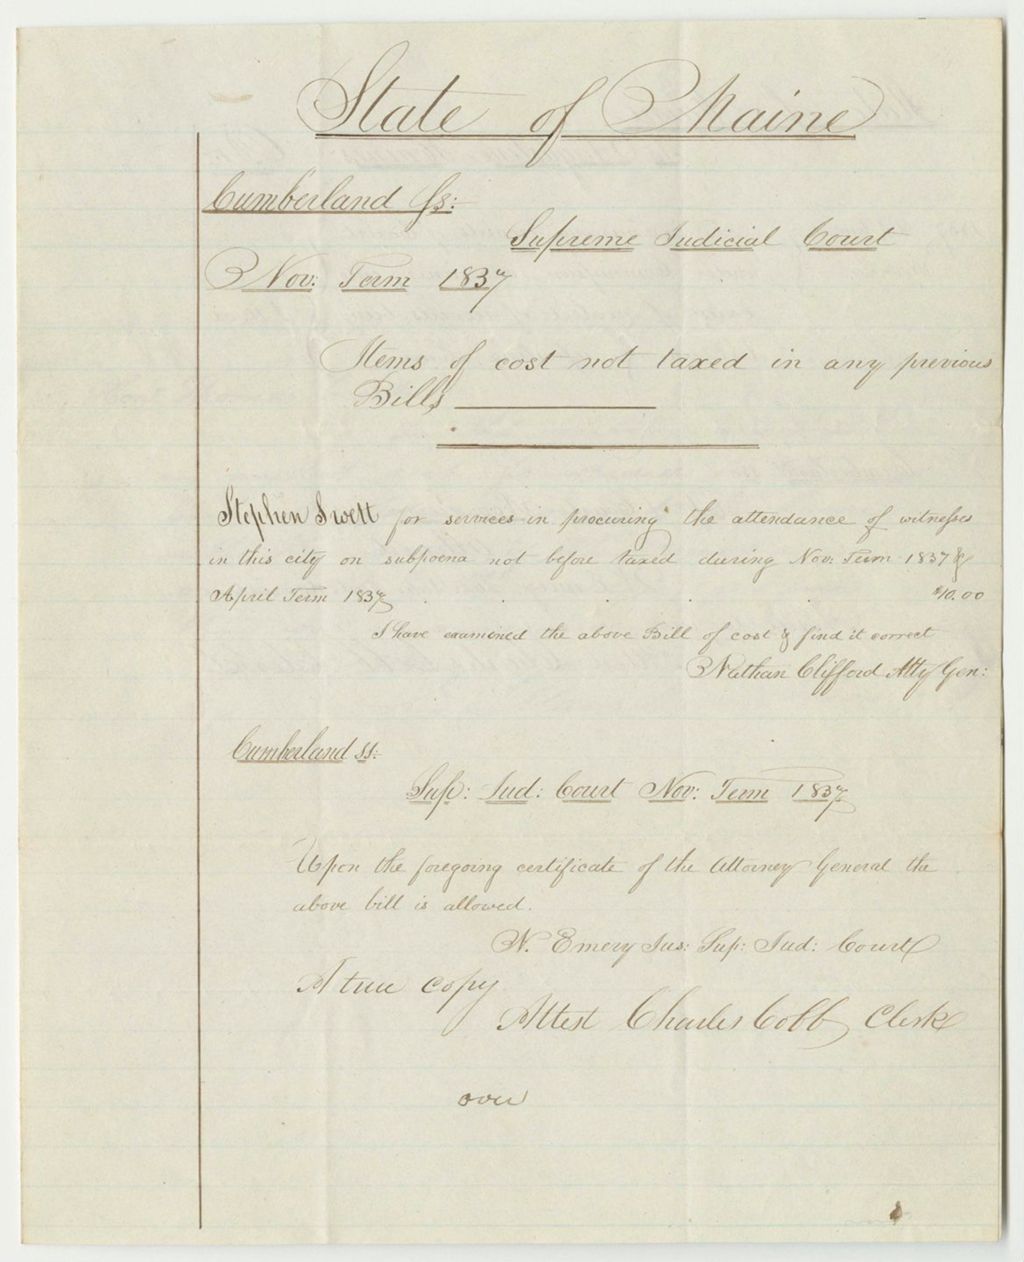 State of Maine
Cumberland Ss:
Supreme Judicial Court
Nov: Term 1837
Items of cost not taxed in any previous
Bills
Stephen Swett for services in procuring the attendance of witnesses
in this city on subpoena not before taxed during Nov: Term 1837 &
April Term 1837 . . . . $10.00
I have examined the above Bill of cost & find it correct
Nathan Clifford Atty Gen:
Cumberland ss:
Sup: Jud: Court Nov: Term 1837
Upon the foregoing certificate of the Attorney General the
above bill is allowed.
N. Emery Jus: Sup: Jud: Court
A true copy
Attest Charles Cobb Clerk
over